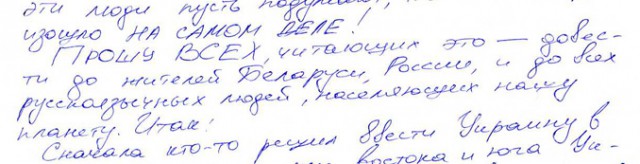 эти люди пусть подумают,
изошло НА САМОМ ДЕЛЕ!
Прошу ВСЕХ, читающих это — довес-
ти до жителей Беларуси, России, и до всех
русскоязычных людей, населяющих нашу
планету. Итак!
Сначала кто-то решил ввести Украину в
востока и юга Ук-